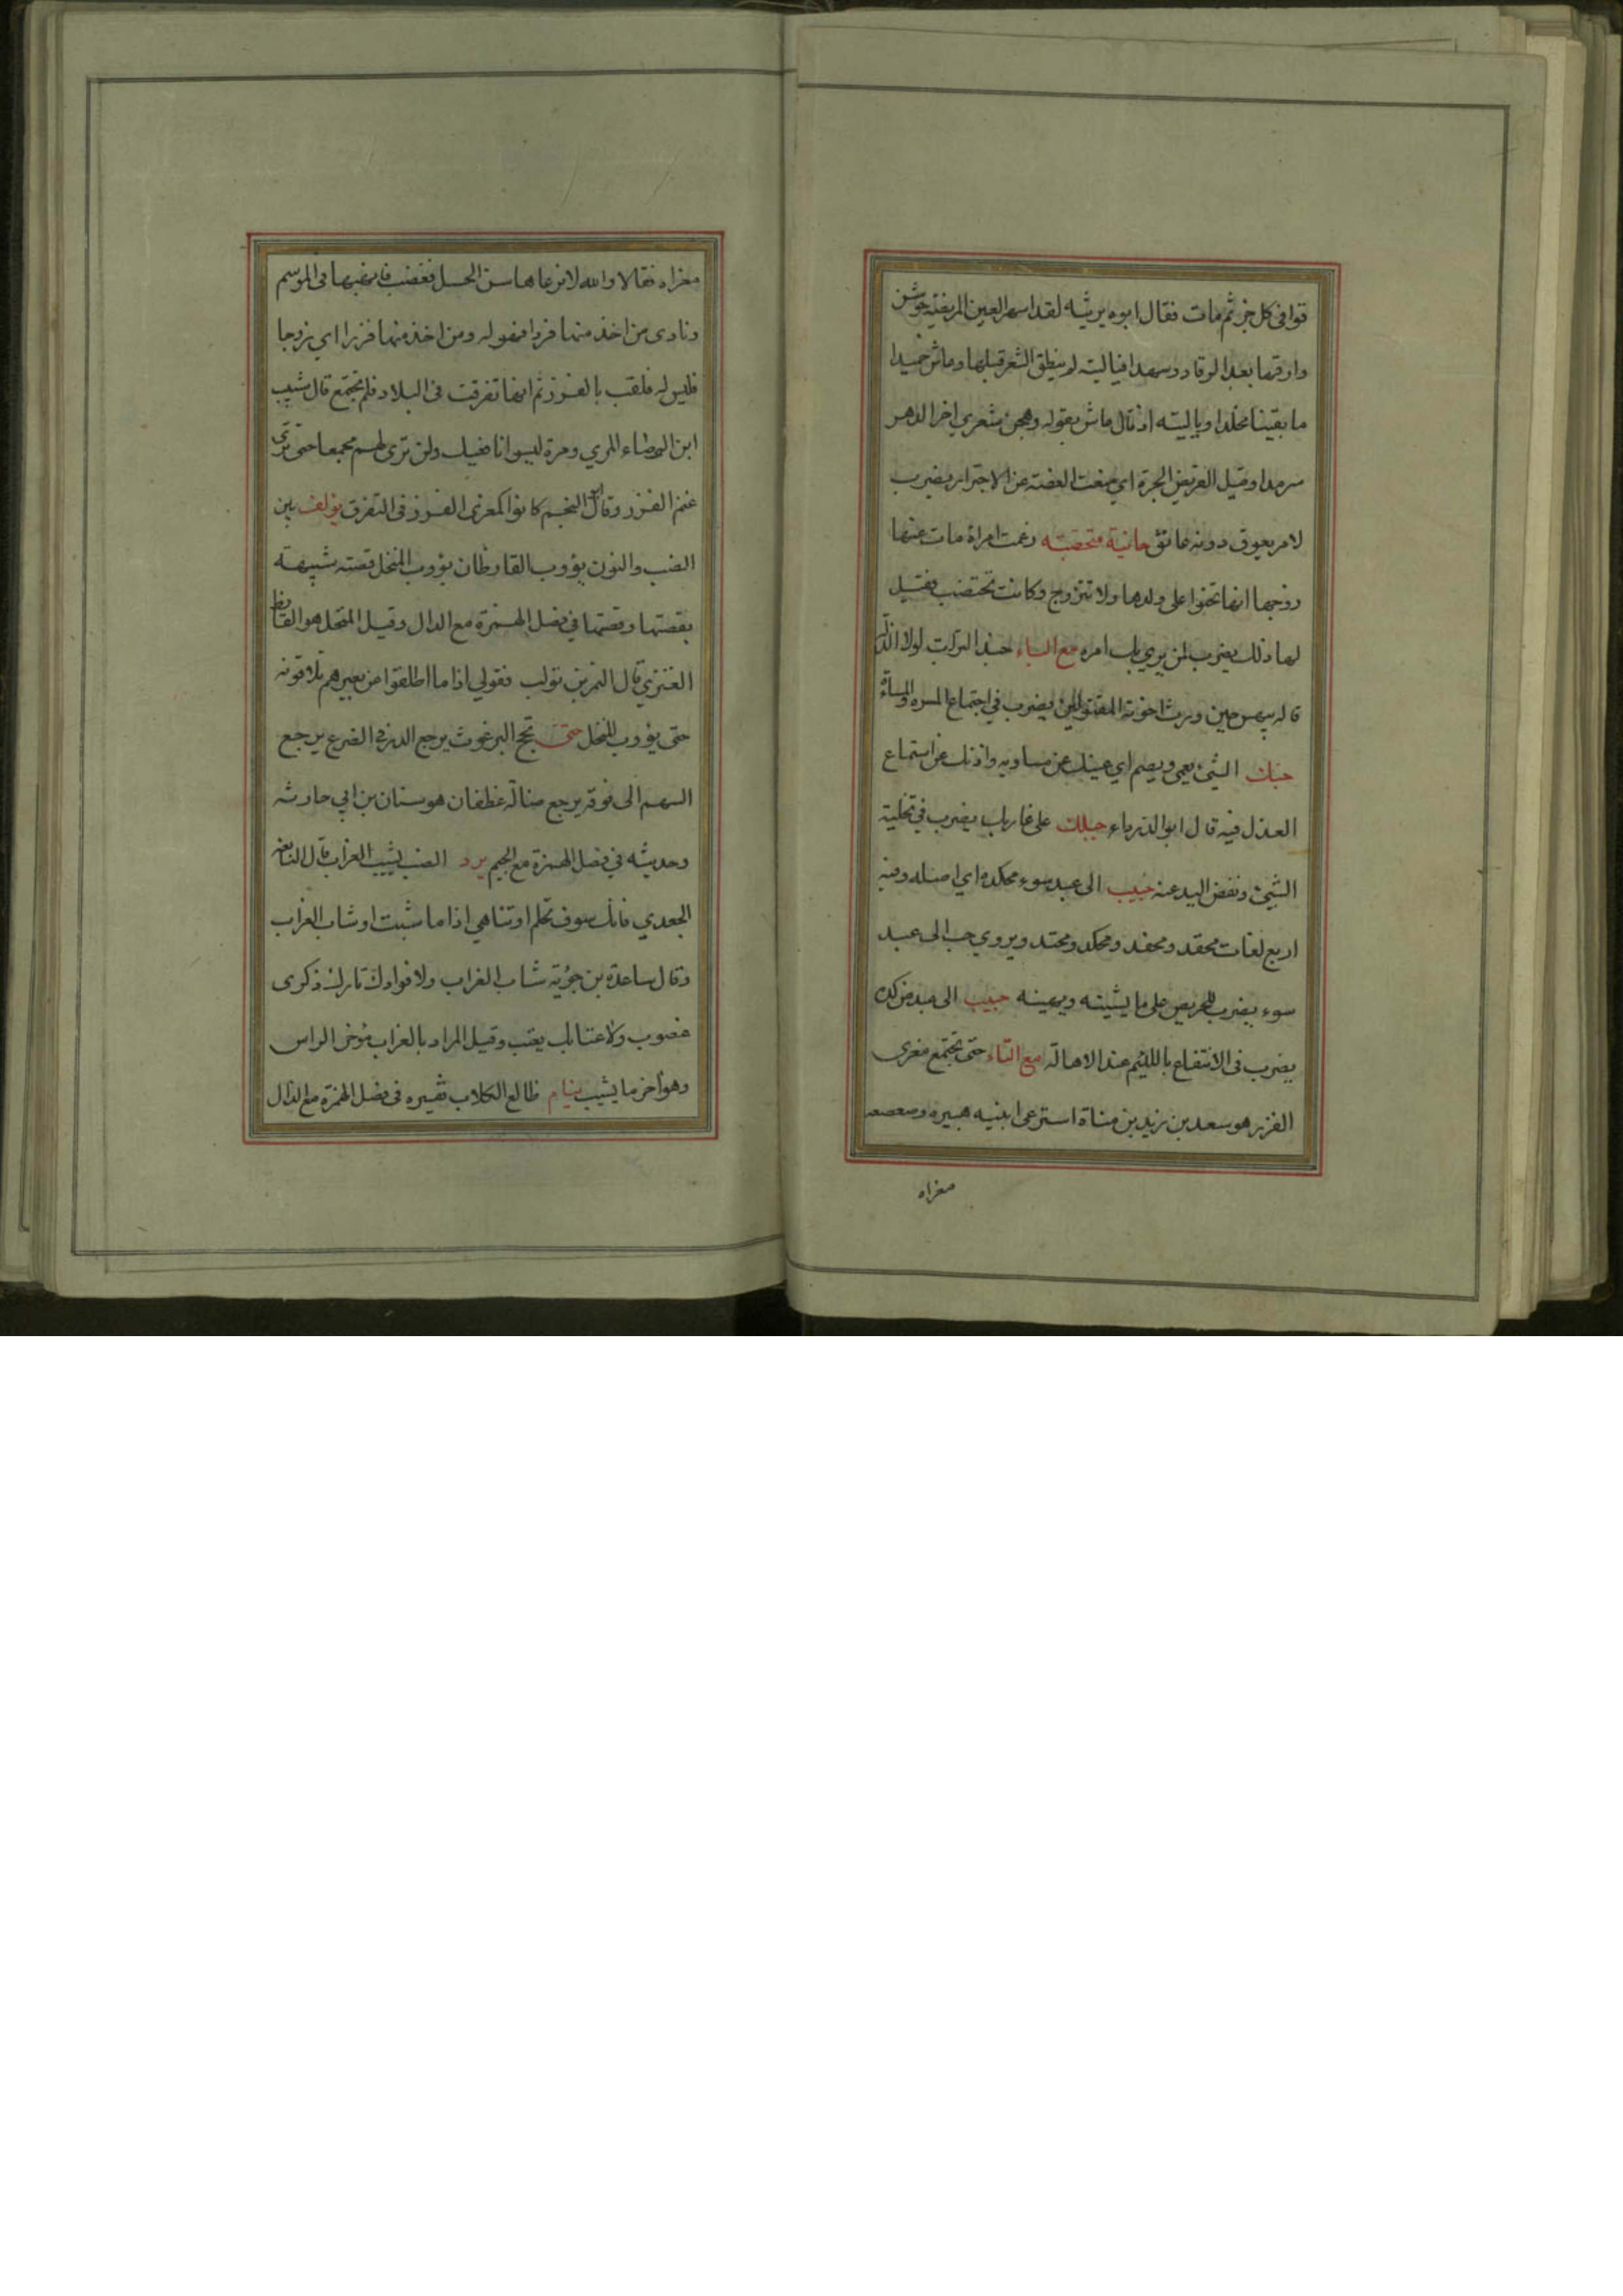 قوافى كل جز ثم مات فقال ابوه يرثيه لقد اسهر العين المريضة جوشن
وارقها بعد الرقاد وسهدا فياليته لم ينطق الشعر قبلها وعاش حميدا
ما بقينا مخلدا وياليته اذ قال عاش بقوله وهجن شعري اخر الدهر
سرمدا وقيل القريض الجرة اي منعت الغصة عن الاجترار يضرب
لامر يعوق دونه عائق حانية مختضبة زعمت امراة مات عنها
زوجها انها تحنوا على ولدها ولا تتزوج وكانت تختضب فقيل
لها ذلك يضرب لمن يريب امره مع الباء حبذا التراث لولا الذلة
قاله بيهس حين ورث اخوته المقتولين يضرب في اجتماع المسره والمساة
حبك الشئ يعمى ويصم اي عينك عن مساويه واذنك عن استماع
العذل فيه قال ابو الدرداء حبلك على غاربك يضرب في تخلية
الشيئ ونفض اليد عنه حبيب الى عبد سوء محكده اي اصله وفيه
اربع لغات محقد ومحفد ومحكد ومحتد ويروي حب الى عبد
سوء يضرب للحريص على ما يشينه ويهينه حبيب الى عبد من كده
يضرب فى الانتفاع باللئيم عند الاهالة مع التاء حتى تجتمع معزى
الفزر هو سعد بن زيد بن مناة استرعى ابنيه هبيره وصعصعه
معزاه
معزاه فقالا والله لا نرعاها سن الحسل فغضب فانهبها فى الموسم
ونادى من اخذ منها فردا فهو له ومن اخذ منها فزرا اي زوجا
فليس له فلقب بالفزر ثم انها تفرقت فى البلاد فلم تجتمع قال شبيب
ابن البرصاء المري ومرة ليسوا نافعيك ولن ترى لهم مجمعا حتى ترى
غنم الفزر وقال ابو النجم كانوا كمعزى الفزر فى التفرق يؤلف بين
الضب والنون يؤوب القارظان يؤوب المنخل قصته شبيهة
بقصتها وقصتها في فصل الهمزة مع الذال وقيل المنخل هو القارظ
العنزي قال النمر بن تولب فقولي اذا ما اطلقوا عن بعيرهم تلاقونه
حتى يؤوب المنخل حتى تجح البرغوث يرجع الدر في الضرع يرجع
السهم الى فوقه يرجع ضالة غطفان هو سنان بن ابي حارثه
وحديثه في فصل الهمزة مع الجيم يرد الضب يشيب الغراب قال النابغه
الجعدي فانك سوف تحلم او تناهي اذا ما شبت او شاب الغراب
وقال ساعدة بن جؤية شاب الغراب ولا فوادك تارك ذكرى
غضوب ولا عتابك يعتب وقيل المراد بالغراب مؤخر الراس
وهو اخر ما يشيب ينام ظالع الكلاب تفسيره فى فصل الهمزة مع الذال